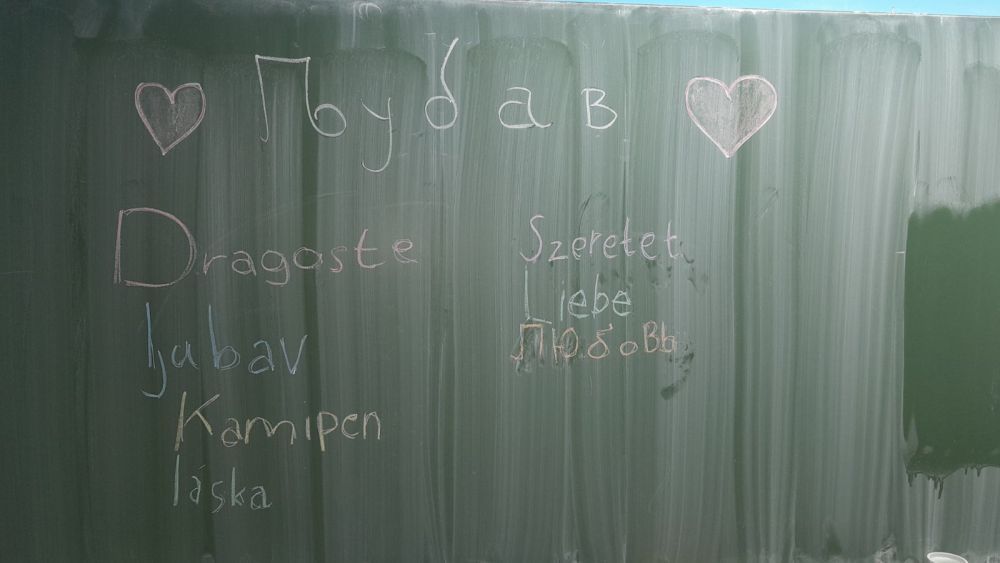 Љубав
Dragoste
ljubav
Kamipen
láska
Szeretet
Liebe
Любовь